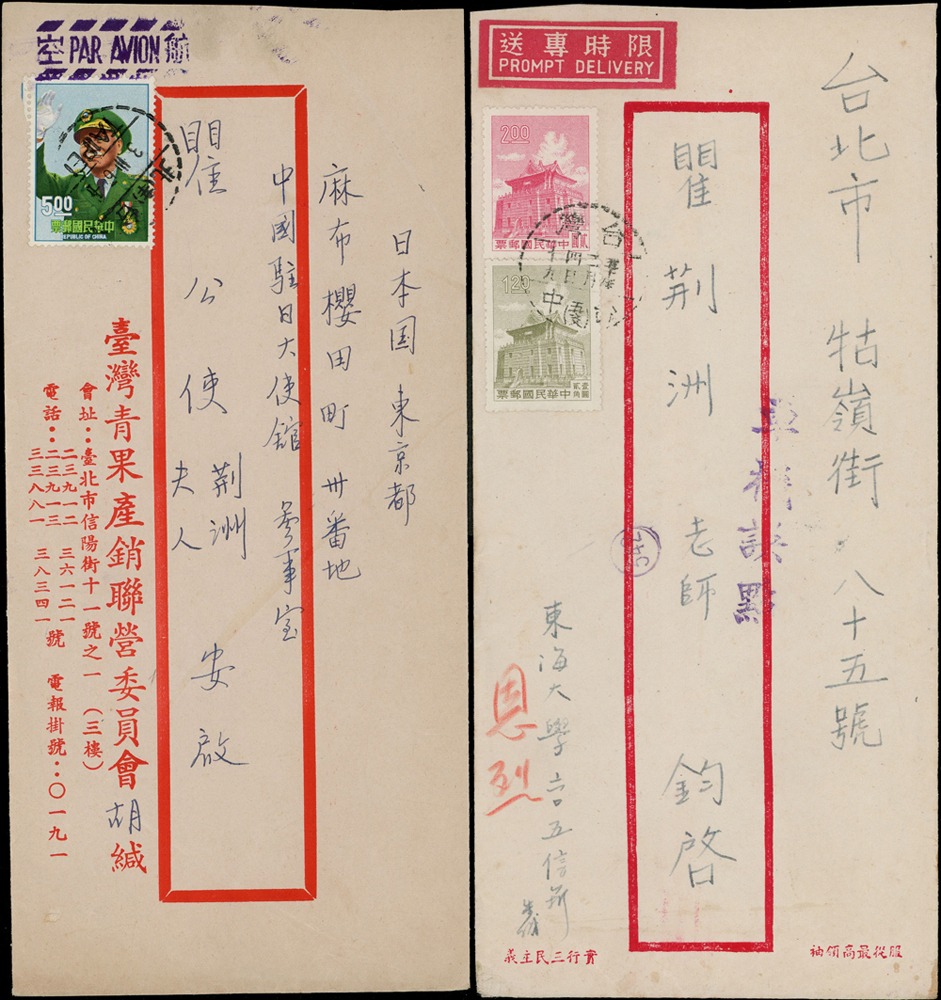 空 PAR AVION 航
5.00
票郵國民華中
REPUBLIC OF CHINA
日本国東京都
麻布櫻田町卅番地
中國駐日大使館 參事室
瞿公使夫人 荆洲 安啟
臺灣青果產銷聯營委員會 胡 緘
會址：臺北市信陽街十一號之一（三樓）
電話：二三九一二 三六一二一
二三九一三 三八三四一 號 電報掛號：〇一九一
三三八八一
送專時限
PROMPT DELIVERY
2.00
票郵國民華中
貳圓
1.20
票郵國民華中
壹圓貳角
台灣
台北市牯嶺街八十五號
瞿荆洲老師 鈞啓
542
東海大學 六〇五信箱
恩烈
義主民三行實
袖領高最從服